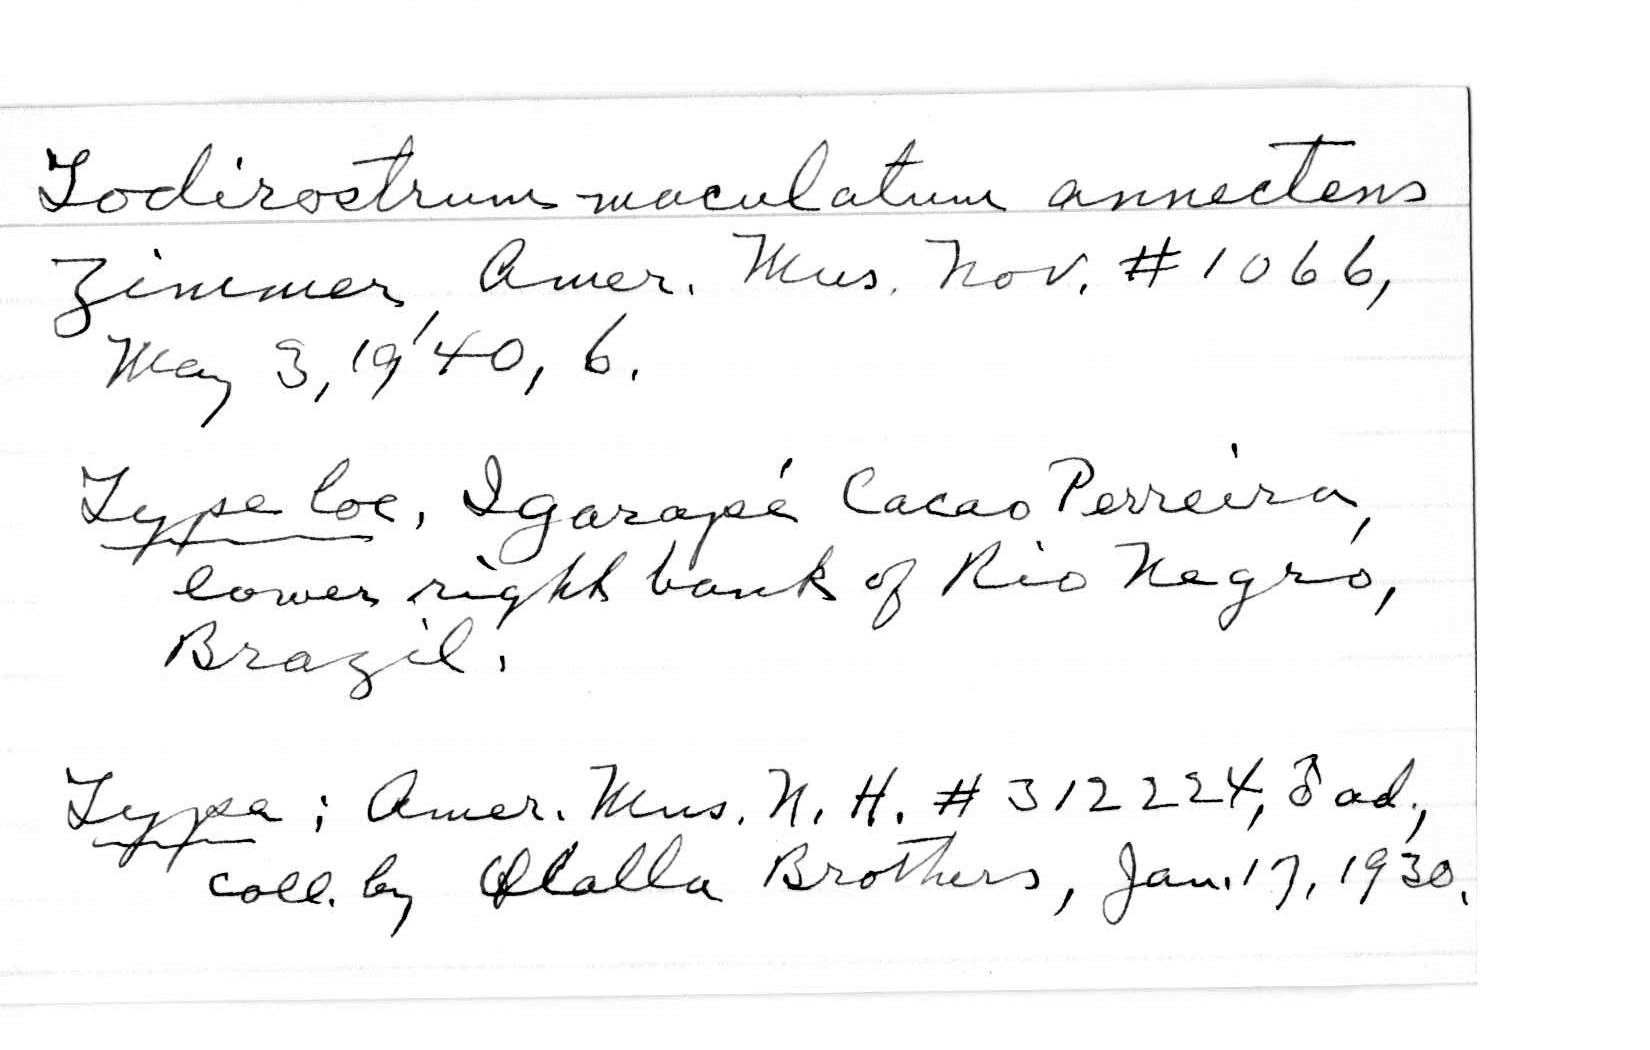 Todirostrum maculatum annectens
Zimmer, Amer. Mus. Nov. #1066,
May 3, 1940, 6.
Type loc, Igarapé Cacao Perreira,
lower right bank of Rio Negro,
Brazil.
Type; Amer. Mus. N. H. #312224, ♂ ad.,
coll. by Olalla Brothers, Jan. 17, 1930.